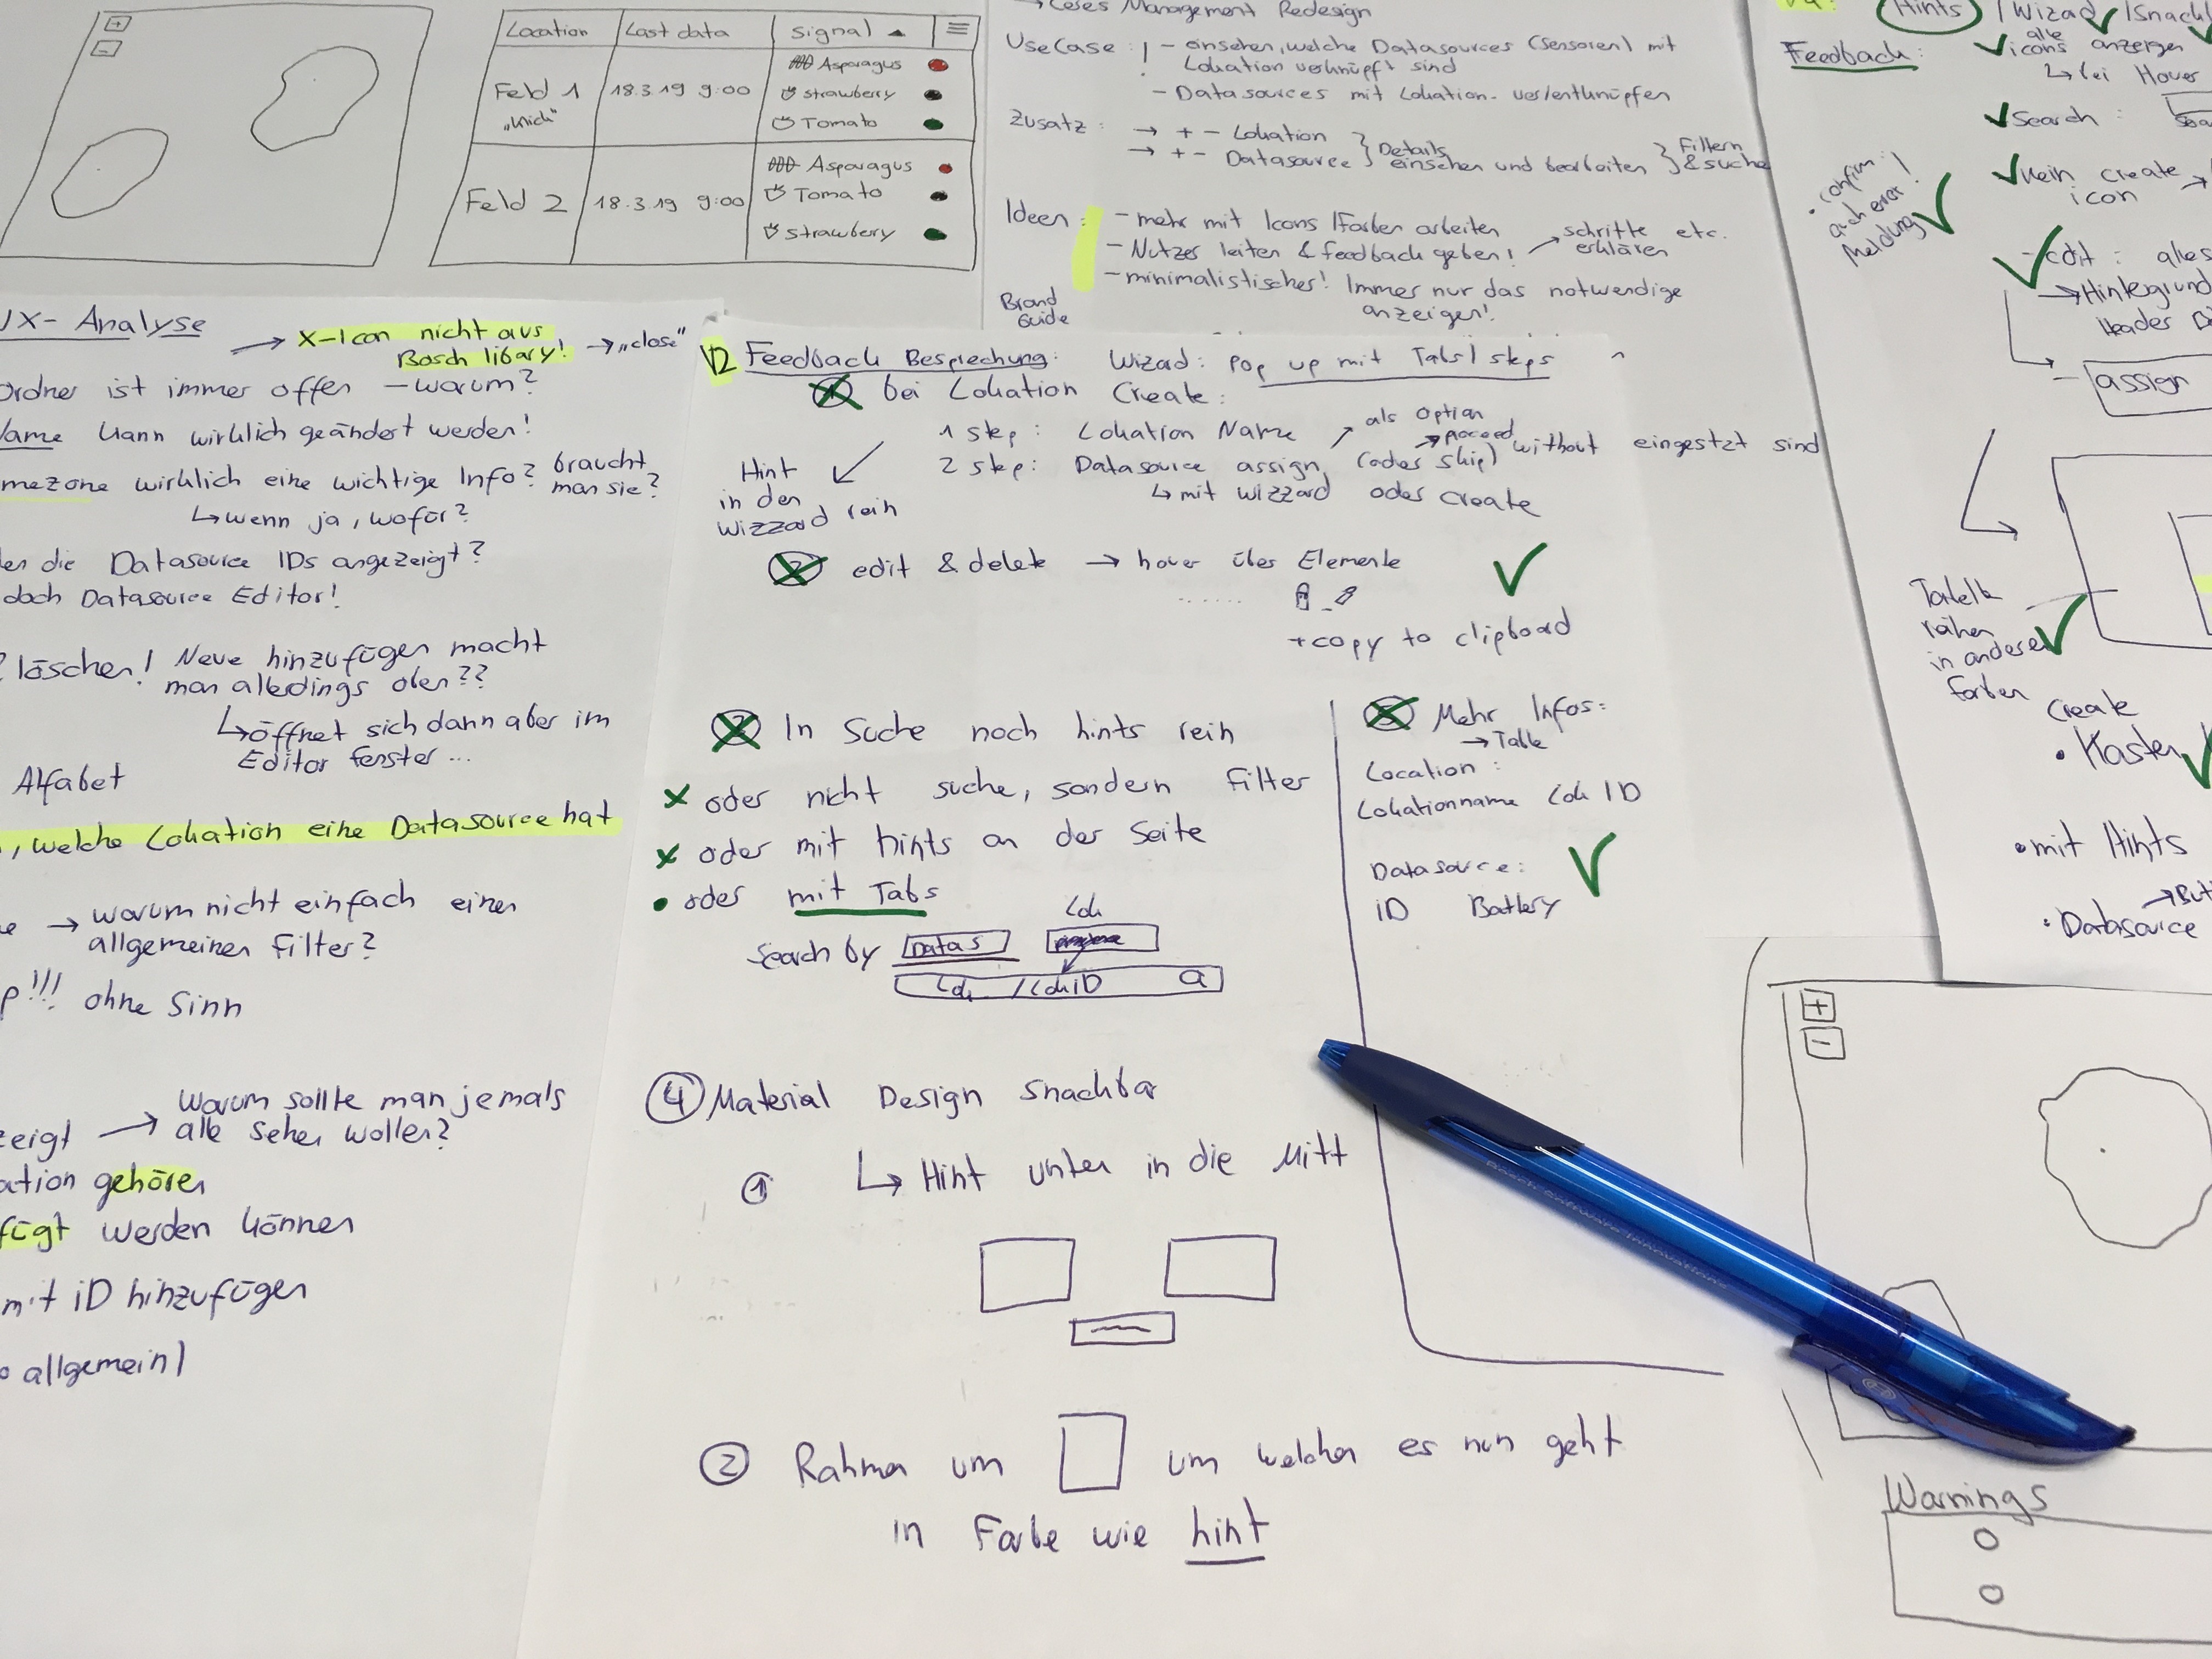 +
-
Location Last data Signal
Asparagus
Feld 1 18.3.19 9:00 strawberry
Tomato
Asparagus
Feld 2 18.3.19 9:00 Tomato
strawberry
Management Redesign
UseCase: - einsehen, welche Datasources (Sensoren) mit
Lokation verknüpft sind
- Datasources mit Lokation ver/entknüpfen
Zusatz: → + - Lokation
→ + - Datasource
Details
einsehen und bearbeiten
Filtern
& suche
Ideen: - mehr mit Icons / Farben arbeiten
- Nutzer leiten & feedback geben! → schritte etc.
erklären
- minimalistischer! Immer nur das notwendige
anzeigen!
Brand
Guide
Hints / Wizad / Snack
Feedback:
alle
icons anzeigen
↳ bei Hover
Search:
kein create →
icon
• confirm
auch einer
Meldung!
- edit: alles
→ Hintergrund
Header
- assign
Tabelle
in anderen
Farben
Create
• Kasten
• mit Hints
→ But
• Datasource
UX-Analyse
→ X-Icon nicht aus
Bosch libary! → „close"
Ordner ist immer offen - warum?
Name kann wirklich geändert werden!
mezone wirklich eine wichtige Info? braucht
man sie?
↳ wenn ja, wofür?
den die Datasource IDs angezeigt?
doch Datasource Editor!
? löschen! Neue hinzufügen macht
man allerdings oben??
↳ öffnet sich dann aber im
Editor fenster ...
Alfabet
, welche Lokation eine Datasource hat
→ warum nicht einfach einen
allgemeinen Filter?
P!!! ohne Sinn
zeigt → Warum sollte man jemals
alle sehen wollen?
ation gehören
fügt werden können
mit iD hinzufügen
allgemein)
V2 Feedback Besprechung: Wizard: Pop up mit Tabs / steps
1 bei Lokation Create:
1 step: Lokation Name ↗ als Option
→ proceed without eingestzt sind
2 step: Datasource assign (oder skip)
↳ mit wizzard oder create
Hint
in den
Wizzard rein
2 edit & delete → hover über Elemente
+ copy to clipboard
3 In Suche noch hints rein
x oder nicht suche, sondern Filter
x oder mit hints an der Seite
• oder mit Tabs
Search by Datas Lok
Lok / Lok iD
5 Mehr Infos:
→ Table
Location:
Lokationname Lok ID
Datasource:
iD Battery
4 Material Design Snackbar
1 ↳ Hint unten in die Mitt
2 Rahmen um um welchen es nun geht
in Farbe wie hint
+
-
Warnings